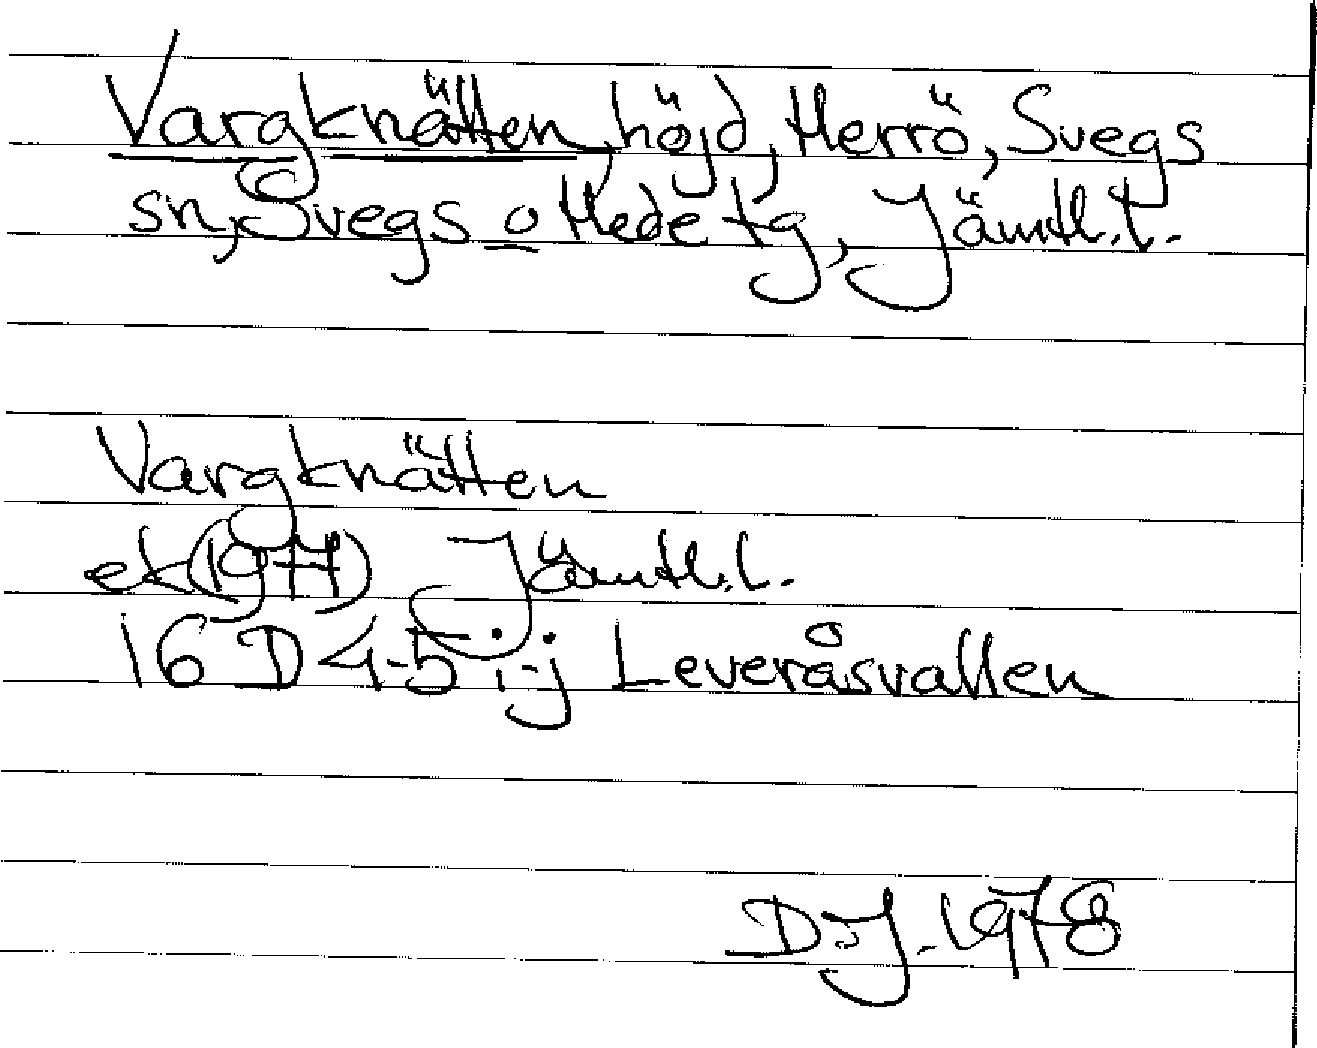 Vargknätten, höjd, Herrö, Svegs
sn, Svegs o Hede tg, Jämtl. l.
Vargknätten
ek (1971) Jämtl. l.
16 D 4-5 i-j Leveråsvallen
DJ. 1978